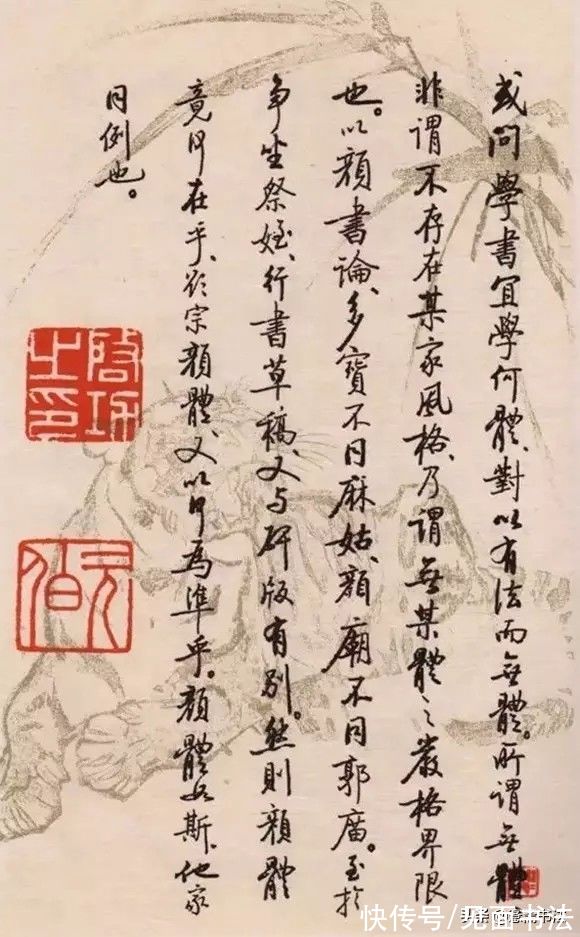 或問學書宜學何體、對以有法而無體。所謂無體
非謂不存在某家風格、乃謂無某體之嚴格界限
也。以顏書論、多寶不同麻姑、顏廟不同郭廟。至於
争坐祭姪、行書草稿、又与碑版有别。然則顏體
竟何在乎、欲宗顏體、又以何為準乎。顏體如斯、他家
同例也。
啟功之印
元白
头条
快传号/见面书法